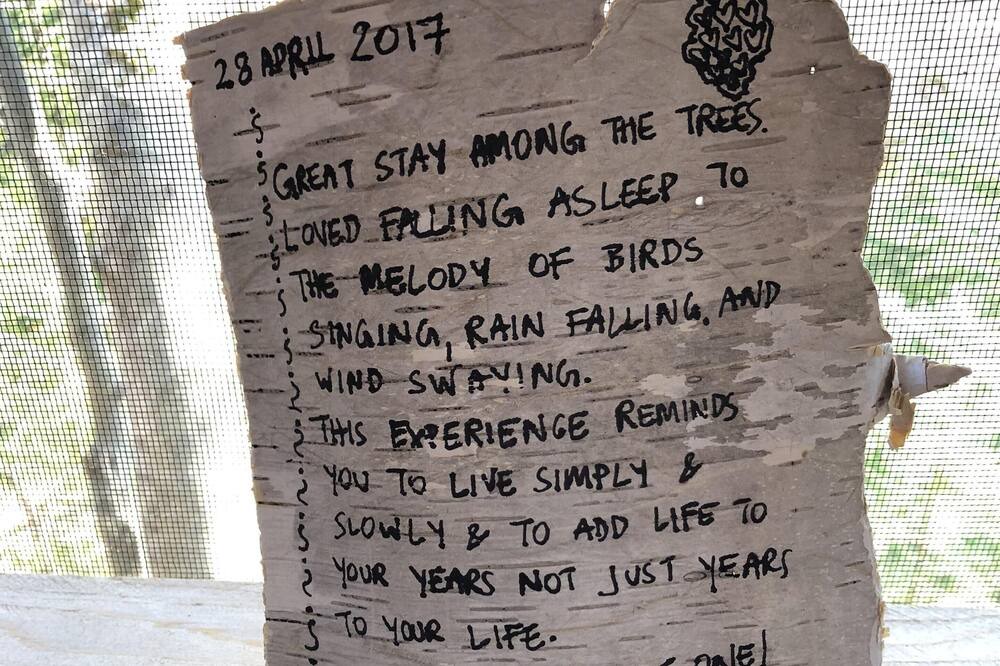 28 APRIL 2017
GREAT STAY AMONG THE TREES.
LOVED FALLING ASLEEP TO
THE MELODY OF BIRDS
SINGING, RAIN FALLING, AND
WIND SWAYING.
THIS EXPERIENCE REMINDS
YOU TO LIVE SIMPLY &
SLOWLY & TO ADD LIFE TO
YOUR YEARS NOT JUST YEARS
TO YOUR LIFE.